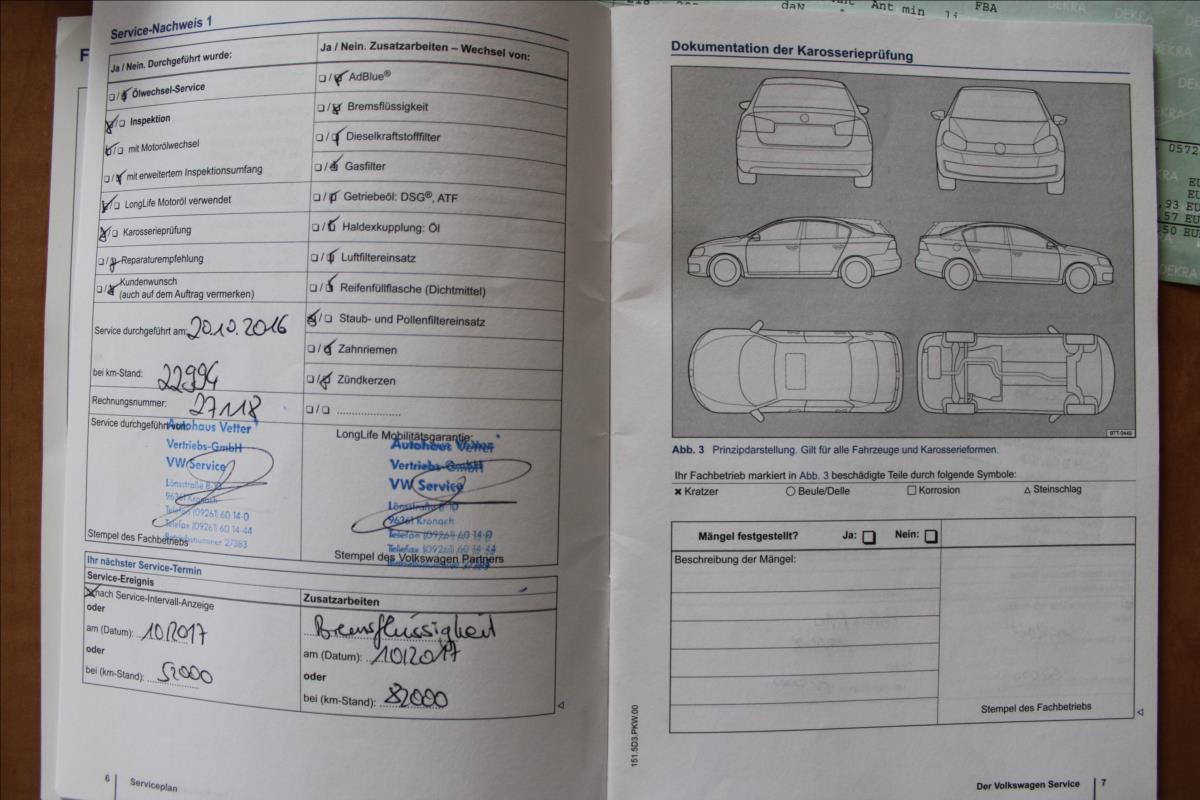 Service-Nachweis 1
Ja / Nein. Durchgeführt wurde:
❏ / ❏ Ölwechsel-Service
❏ / ❏ Inspektion
❏ / ❏ mit Motorölwechsel
❏ / ❏ mit erweitertem Inspektionsumfang
❏ / ❏ LongLife Motoröl verwendet
❏ / ❏ Karosserieprüfung
❏ / ❏ Reparaturempfehlung
❏ / ❏ Kundenwunsch
(auch auf dem Auftrag vermerken)
Service durchgeführt am: 20.10.2016
bei km-Stand: 22994
Rechnungsnummer: 27118
Service durchgeführt von:
Autohaus Vetter
Vertriebs-GmbH
VW Service
Lönsstraße 8-10
96361 Kronach
Telefon (09261) 60 14-0
Telefax (09261) 60 14-44
Betriebsnummer 27383
Stempel des Fachbetriebs
Ja / Nein. Zusatzarbeiten – Wechsel von:
❏ / ❏ AdBlue®
❏ / ❏ Bremsflüssigkeit
❏ / ❏ Dieselkraftstofffilter
❏ / ❏ Gasfilter
❏ / ❏ Getriebeöl: DSG®, ATF
❏ / ❏ Haldexkupplung: Öl
❏ / ❏ Luftfiltereinsatz
❏ / ❏ Reifenfüllflasche (Dichtmittel)
❏ / ❏ Staub- und Pollenfiltereinsatz
❏ / ❏ Zahnriemen
❏ / ❏ Zündkerzen
❏ / ❏ ....................
LongLife Mobilitätsgarantie:
Autohaus Vetter
Vertriebs-GmbH
VW Service
Lönsstraße 8-10
96361 Kronach
Telefon (09261) 60 14-0
Telefax (09261) 60 14-44
Stempel des Volkswagen Partners
Ihr nächster Service-Termin
Service-Ereignis
nach Service-Intervall-Anzeige
oder
am (Datum): 10/2017
oder
bei (km-Stand): 52000
Zusatzarbeiten
Bremsflüssigkeit
am (Datum): 10/2017
oder
bei (km-Stand): 82000
6 Serviceplan
Dokumentation der Karosserieprüfung
BTT-0448
Abb. 3 Prinzipdarstellung. Gilt für alle Fahrzeuge und Karosserieformen.
Ihr Fachbetrieb markiert in Abb. 3 beschädigte Teile durch folgende Symbole:
✖ Kratzer ○ Beule/Delle □ Korrosion △ Steinschlag
Mängel festgestellt? Ja: ❏ Nein: ❏
Beschreibung der Mängel:
Stempel des Fachbetriebs
151.5D3.PKW.00
Der Volkswagen Service 7
daN
Ant min
FBA
DEKRA
DEKRA
DEKRA
0572
,93 EU
,57 EU
50 EU
DEKRA